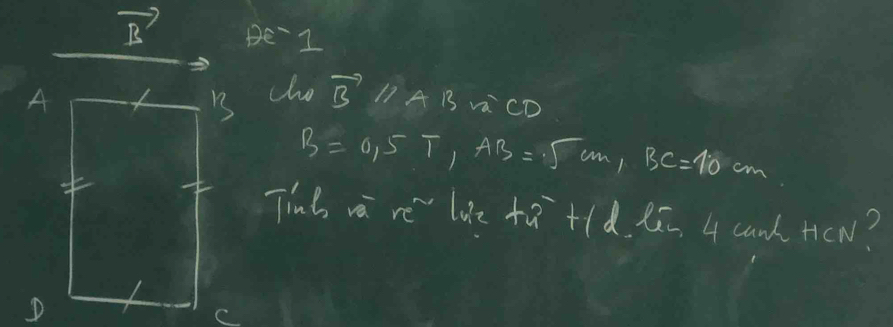 B⃗
Đề 1
A
B
Cho B⃗ // AB và CD
B = 0,5 T, AB = 5 cm, BC = 10 cm.
Tính và vẽ lực từ t/d lên 4 cạnh HCN?
D
C